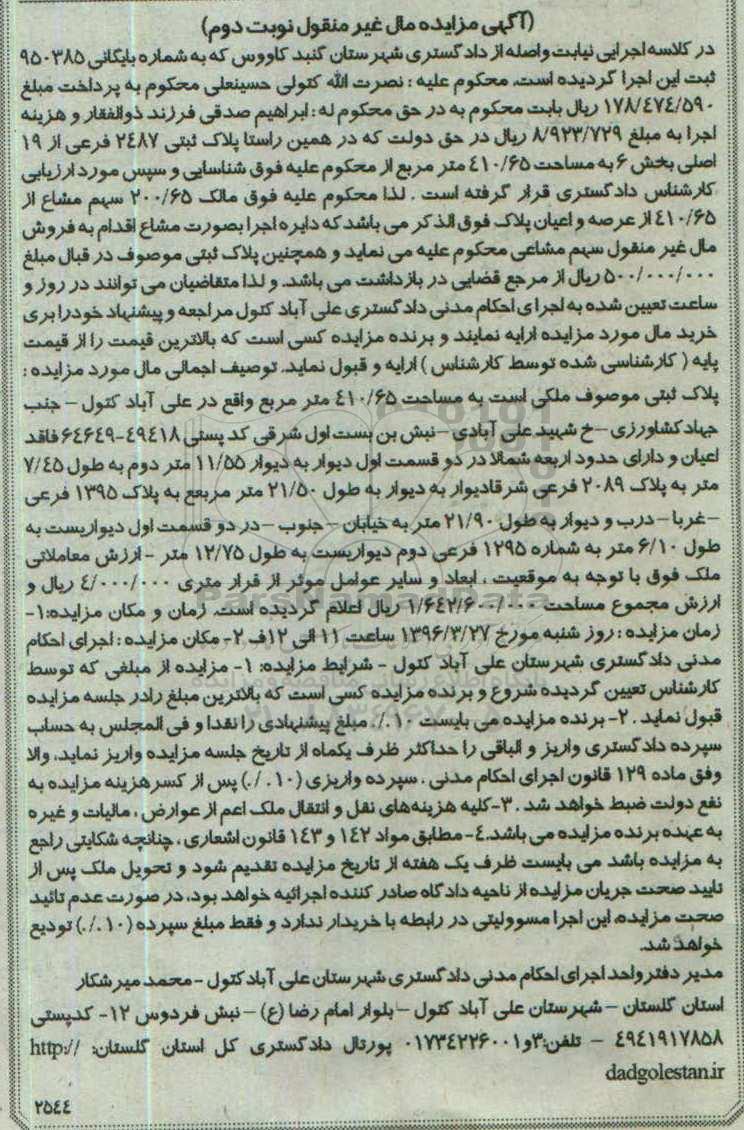 (آگهی مزایده مال غیر منقول نوبت دوم)
در کلاسه اجرایی نیابت واصله از دادگستری شهرستان گنبد کاووس که به شماره بایگانی ۹۵۰۳۸۵
ثبت این اجرا گردیده است. محکوم علیه : نصرت الله کتولی حسینعلی محکوم به پرداخت مبلغ
۱۷۸/٤۷٤/۵۹۰ ریال بابت محکوم به در حق محکوم له : ابراهیم صدقی فرزند ذوالفقار و هزینه
اجرا به مبلغ ۸/۹۲۳/۷۲۹ ریال در حق دولت که در همین راستا پلاک ثبتی ۲٤۸۷ فرعی از ۱۹
اصلی بخش ۶ به مساحت ٤۱۰/۶۵ متر مربع از محکوم علیه فوق شناسایی و سپس مورد ارزیابی
کارشناس دادگستری قرار گرفته است . لذا محکوم علیه فوق مالک ۲۰۰/۶۵ سهم مشاع از
٤۱۰/۶۵ از عرصه و اعیان پلاک فوق الذکر می باشد که دایره اجرا بصورت مشاع اقدام به فروش
مال غیر منقول سهم مشاعی محکوم علیه می نماید و همچنین پلاک ثبتی موصوف در قبال مبلغ
۵۰۰/۰۰۰/۰۰۰ ریال از مرجع قضایی در بازداشت می باشد. و لذا متقاضیان می توانند در روز و
ساعت تعیین شده به اجرای احکام مدنی دادگستری علی آباد کتول مراجعه و پیشنهاد خودرا بری
خرید مال مورد مزایده ارایه نمایند و برنده مزایده کسی است که بالاترین قیمت را از قیمت
پایه ( کارشناسی شده توسط کارشناس ) ارایه و قبول نماید. توصیف اجمالی مال مورد مزایده :
پلاک ثبتی موصوف ملکی است به مساحت ٤۱۰/۶۵ متر مربع واقع در علی آباد کتول – جنب
جهاد کشاورزی –خ شهید علی آبادی –نبش بن بست اول شرقی کد پستی ٤۹٤۱۸-۶٤۶٤۹ فاقد
اعیان و دارای حدود اربعه شمالا در دو قسمت اول دیوار به دیوار ۱۱/۵۵ متر دوم به طول ۷/٤۵
متر به پلاک ۲۰۸۹ فرعی شرقادیوار به دیوار به طول ۲۱/۵۰ متر مربعع به پلاک ۱۳۹۵ فرعی
–غربا –درب و دیوار به طول ۲۱/۹۰ متر به خیابان –جنوب –در دو قسمت اول دیواریست به
طول ۶/۱۰ متر به شماره ۱۲۹۵ فرعی دوم دیواریست به طول ۱۲/۷۵ متر – ارزش معاملاتی
ملک فوق با توجه به موقعیت ، ابعاد و سایر عوامل موثر از قرار متری ٤/۰۰۰/۰۰۰ ریال و
ارزش مجموع مساحت ۱/۶٤۲/۶۰۰/۰۰۰ ریال اعلام گردیده است. زمان و مکان مزایده:۱-
زمان مزایده : روز شنبه مورخ ۱۳۹۶/۳/۲۷ ساعت ۱۱ الی ۱۲ف ۲- مکان مزایده : اجرای احکام
مدنی دادگستری شهرستان علی آباد کتول – شرایط مزایده: ۱- مزایده از مبلغی که توسط
کارشناس تعیین گردیده شروع و برنده مزایده کسی است که بالاترین مبلغ رادر جلسه مزایده
قبول نماید . ۲- برنده مزایده می بایست ۱۰ ./. مبلغ پیشنهادی را نقدا و فی المجلس به حساب
سپرده دادگستری واریز و الباقی را حداکثر ظرف یکماه از تاریخ جلسه مزایده واریز نماید، والا
وفق ماده ۱۲۹ قانون اجرای احکام مدنی ، سپرده واریزی (۱۰ ./.) پس از کسر هزینه مزایده به
نفع دولت ضبط خواهد شد . ۳-کلیه هزینه‌های نقل و انتقال ملک اعم از عوارض ، مالیات و غیره
به عهده برنده مزایده می باشد.٤- مطابق مواد ۱٤۲ و ۱٤۳ قانون اشعاری ، چنانچه شکایتی راجع
به مزایده باشد می بایست ظرف یک هفته از تاریخ مزایده تقدیم شود و تحویل ملک پس از
تایید صحت جریان مزایده از ناحیه دادگاه صادر کننده اجرائیه خواهد بود، در صورت عدم تائید
صحت مزایده، این اجرا مسوولیتی در رابطه با خریدار ندارد و فقط مبلغ سپرده (۱۰ ./.) تودیع
خواهد شد.
مدیر دفتر واحد اجرای احکام مدنی دادگستری شهرستان علی آباد کتول –محمد میرشکار
استان گلستان – شهرستان علی آباد کتول – بلوار امام رضا (ع) – نبش فردوس ۱۲- کدپستی
٤۹٤۱۹۱۷۸۵۸ – تلفن:۳و۰۱۷۳٤۲۲۶۰۰۱ پورتال دادگستری کل استان گلستان: http://
dadgolestan.ir
۲۵٤٤